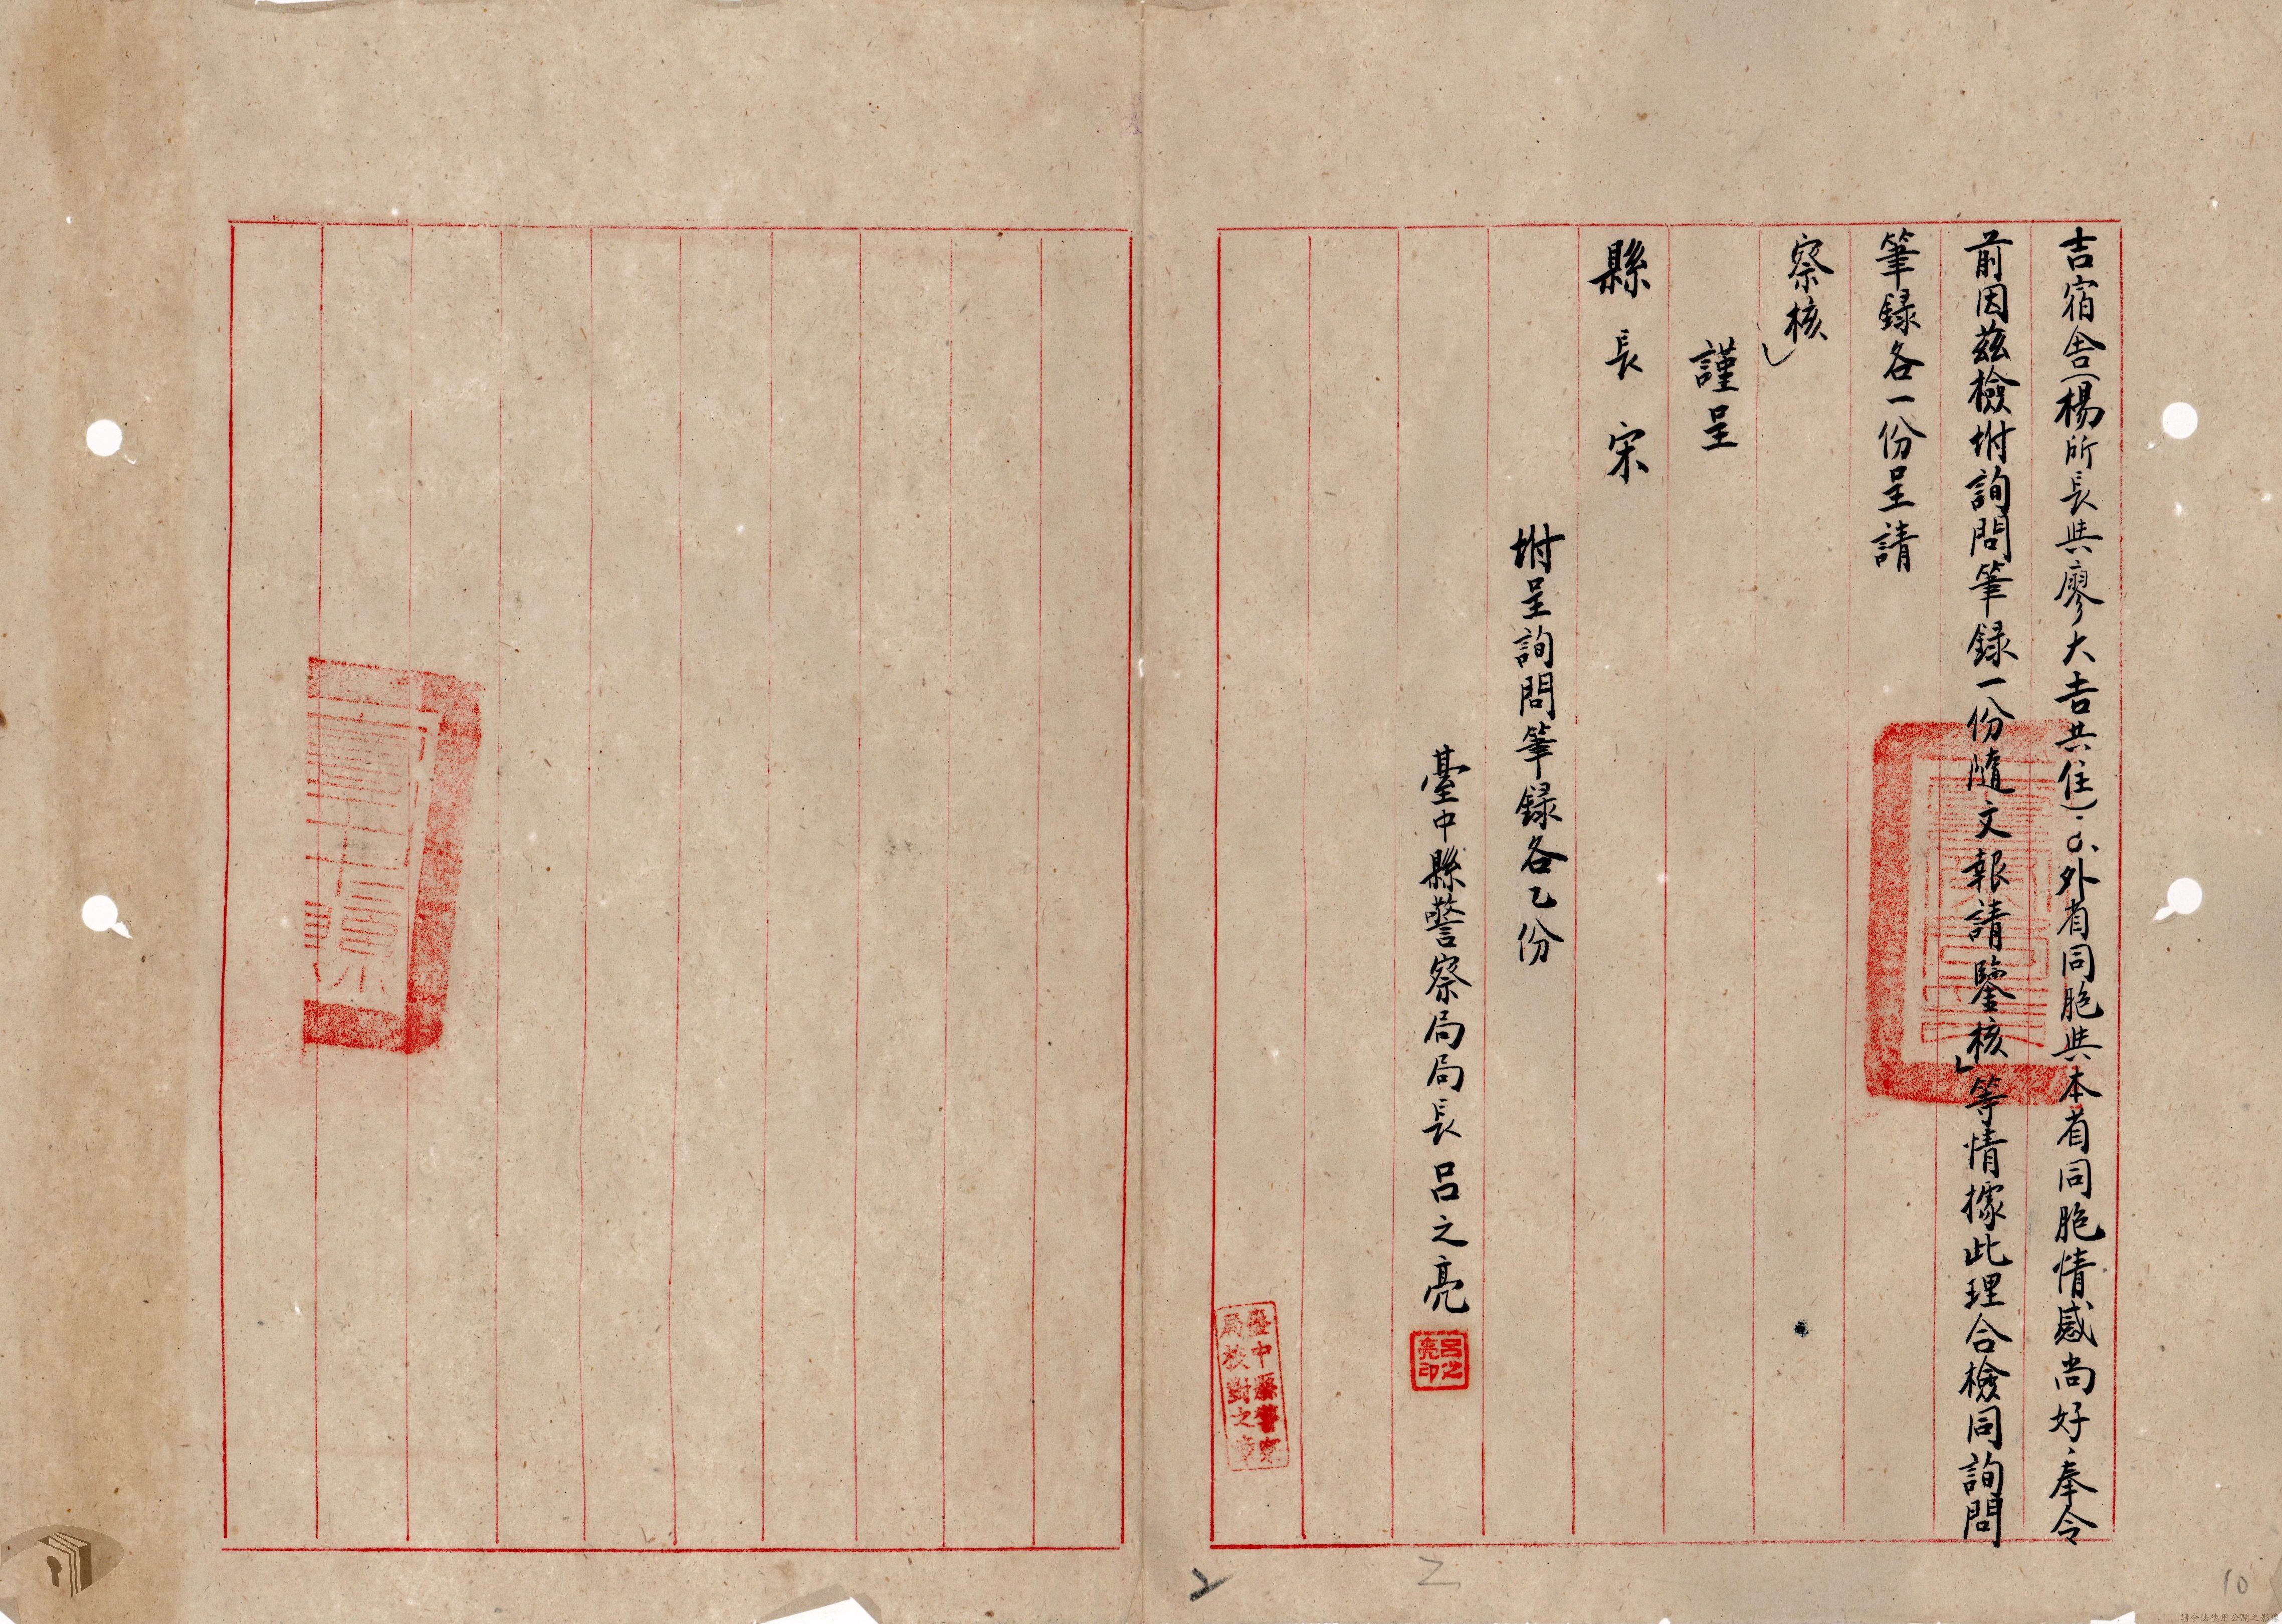 吉宿舍(楊所長與廖大吉共住)。6、外省同胞與本省同胞情感尚好、奉令
前因茲檢坿詢問筆錄一份隨文報請鑒核」等情據此理合檢同詢問
筆錄各一份呈請
察核」
謹呈
縣長宋
坿呈詢問筆錄各乙份
臺中縣警察局局長呂之亮
呂之亮印
臺中縣警察局校對之章
2
乙
10
請合法使用公開之影像